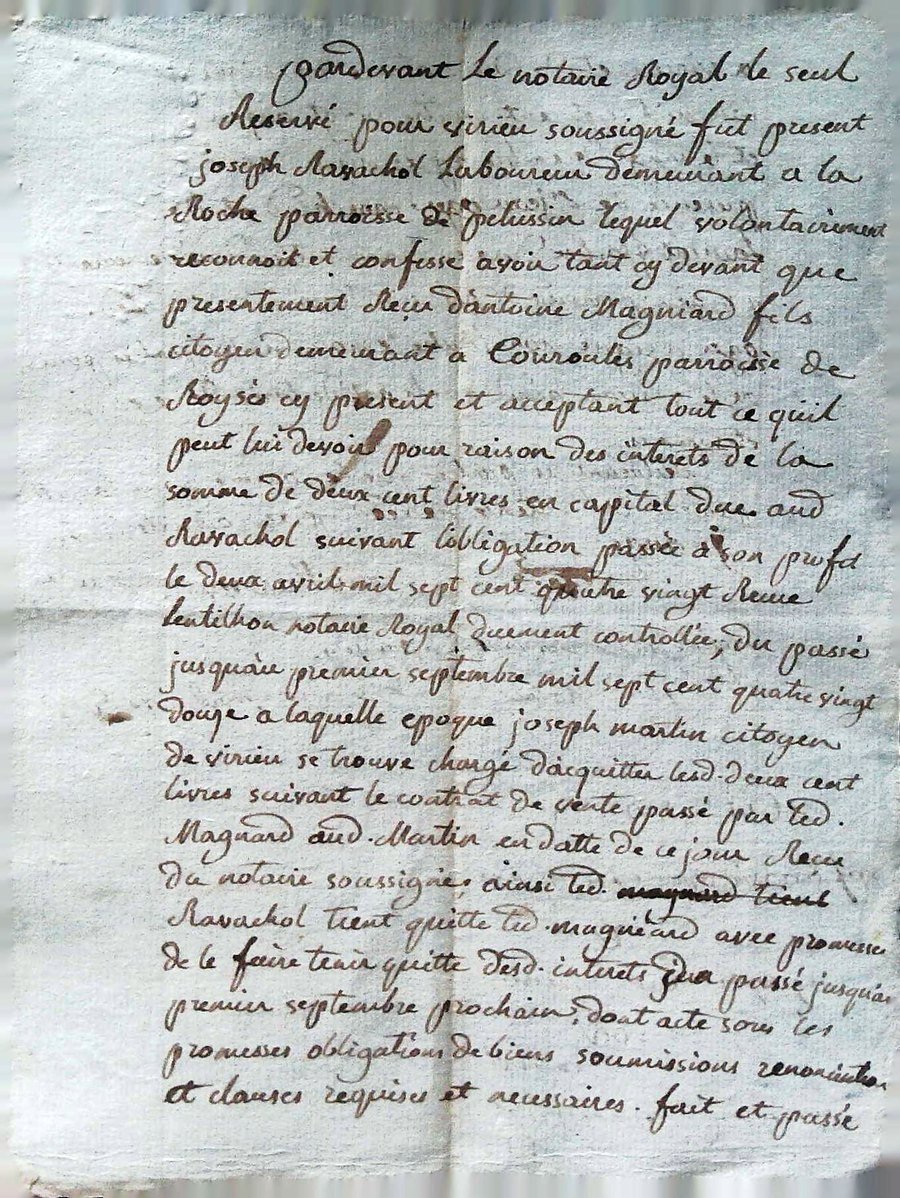 pardevant Le notaire Royal le seul
Reservé pour virieu soussigné fut present
joseph Ravachol Laboureur demeurant a la
Roche parroisse de pelussin lequel volontairement
reconnoit et confesse avoir tant cy devant que
presentement Recu d'antoine Magniard fils
citoyen demeurant a Couroules parroisse de
Roysés cy present et acceptant tout ce quil
peut lui devoir pour raison des interets de la
somme de deux cent livres en capital due aud
Ravachol suivant l'obligation passée a son profit
le deux avril mil sept cent quatre vingt Recue
Lentilhon notaire Royal duement controllée, du passé
jusquau premier septembre mil sept cent quatre vingt
douze a laquelle epoque joseph martin citoyen
de virieu se trouve chargé dacquitter lesd. deux cent
livres suivant le contrat de vente passé par led.
Magnard aud. Martin en datte de ce jour Recu
du notaire soussigné, ainsi led. magnard tient
Ravachol tient quitte led. magniard avec promesse
de le faire tenir quitte desd. interets du passé jusquau
premier septembre prochain, dont acte sous les
promesses obligations de biens soumissions renonciation
et clauses requises et necessaires. fait et passé